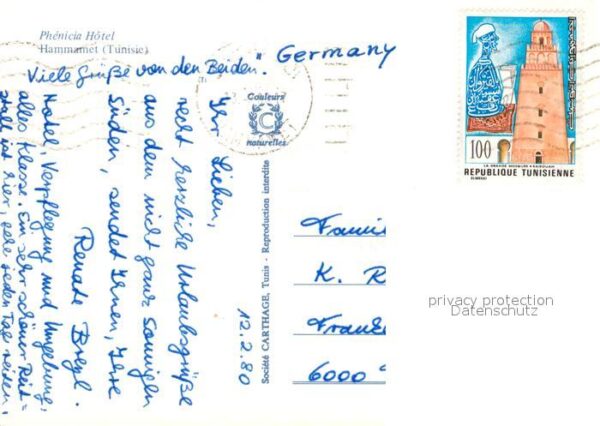 Phénicia Hôtel
Hammamet (Tunisie)
Germany
Viele Grüße von den Beiden.
12.2.80
Ihr Lieben,
recht herzliche Urlaubsgrüße
aus dem nicht ganz sonnigen
Süden, sendet Ihnen, Ihre
Renate
Hotel, Verpflegung und Umgebung,
alles Klasse. Ein sehr schöner Reit=
stall ist hier, gehe jeden Tag reiten,
Couleurs
C
naturelles
Société CARTHAGE, Tunis - Reproduction interdite
100
LA GRANDE MOSQUEE KAIROUAN
REPUBLIQUE TUNISIENNE
Famil
K. R
Frank
6000
privacy protection
Datenschutz